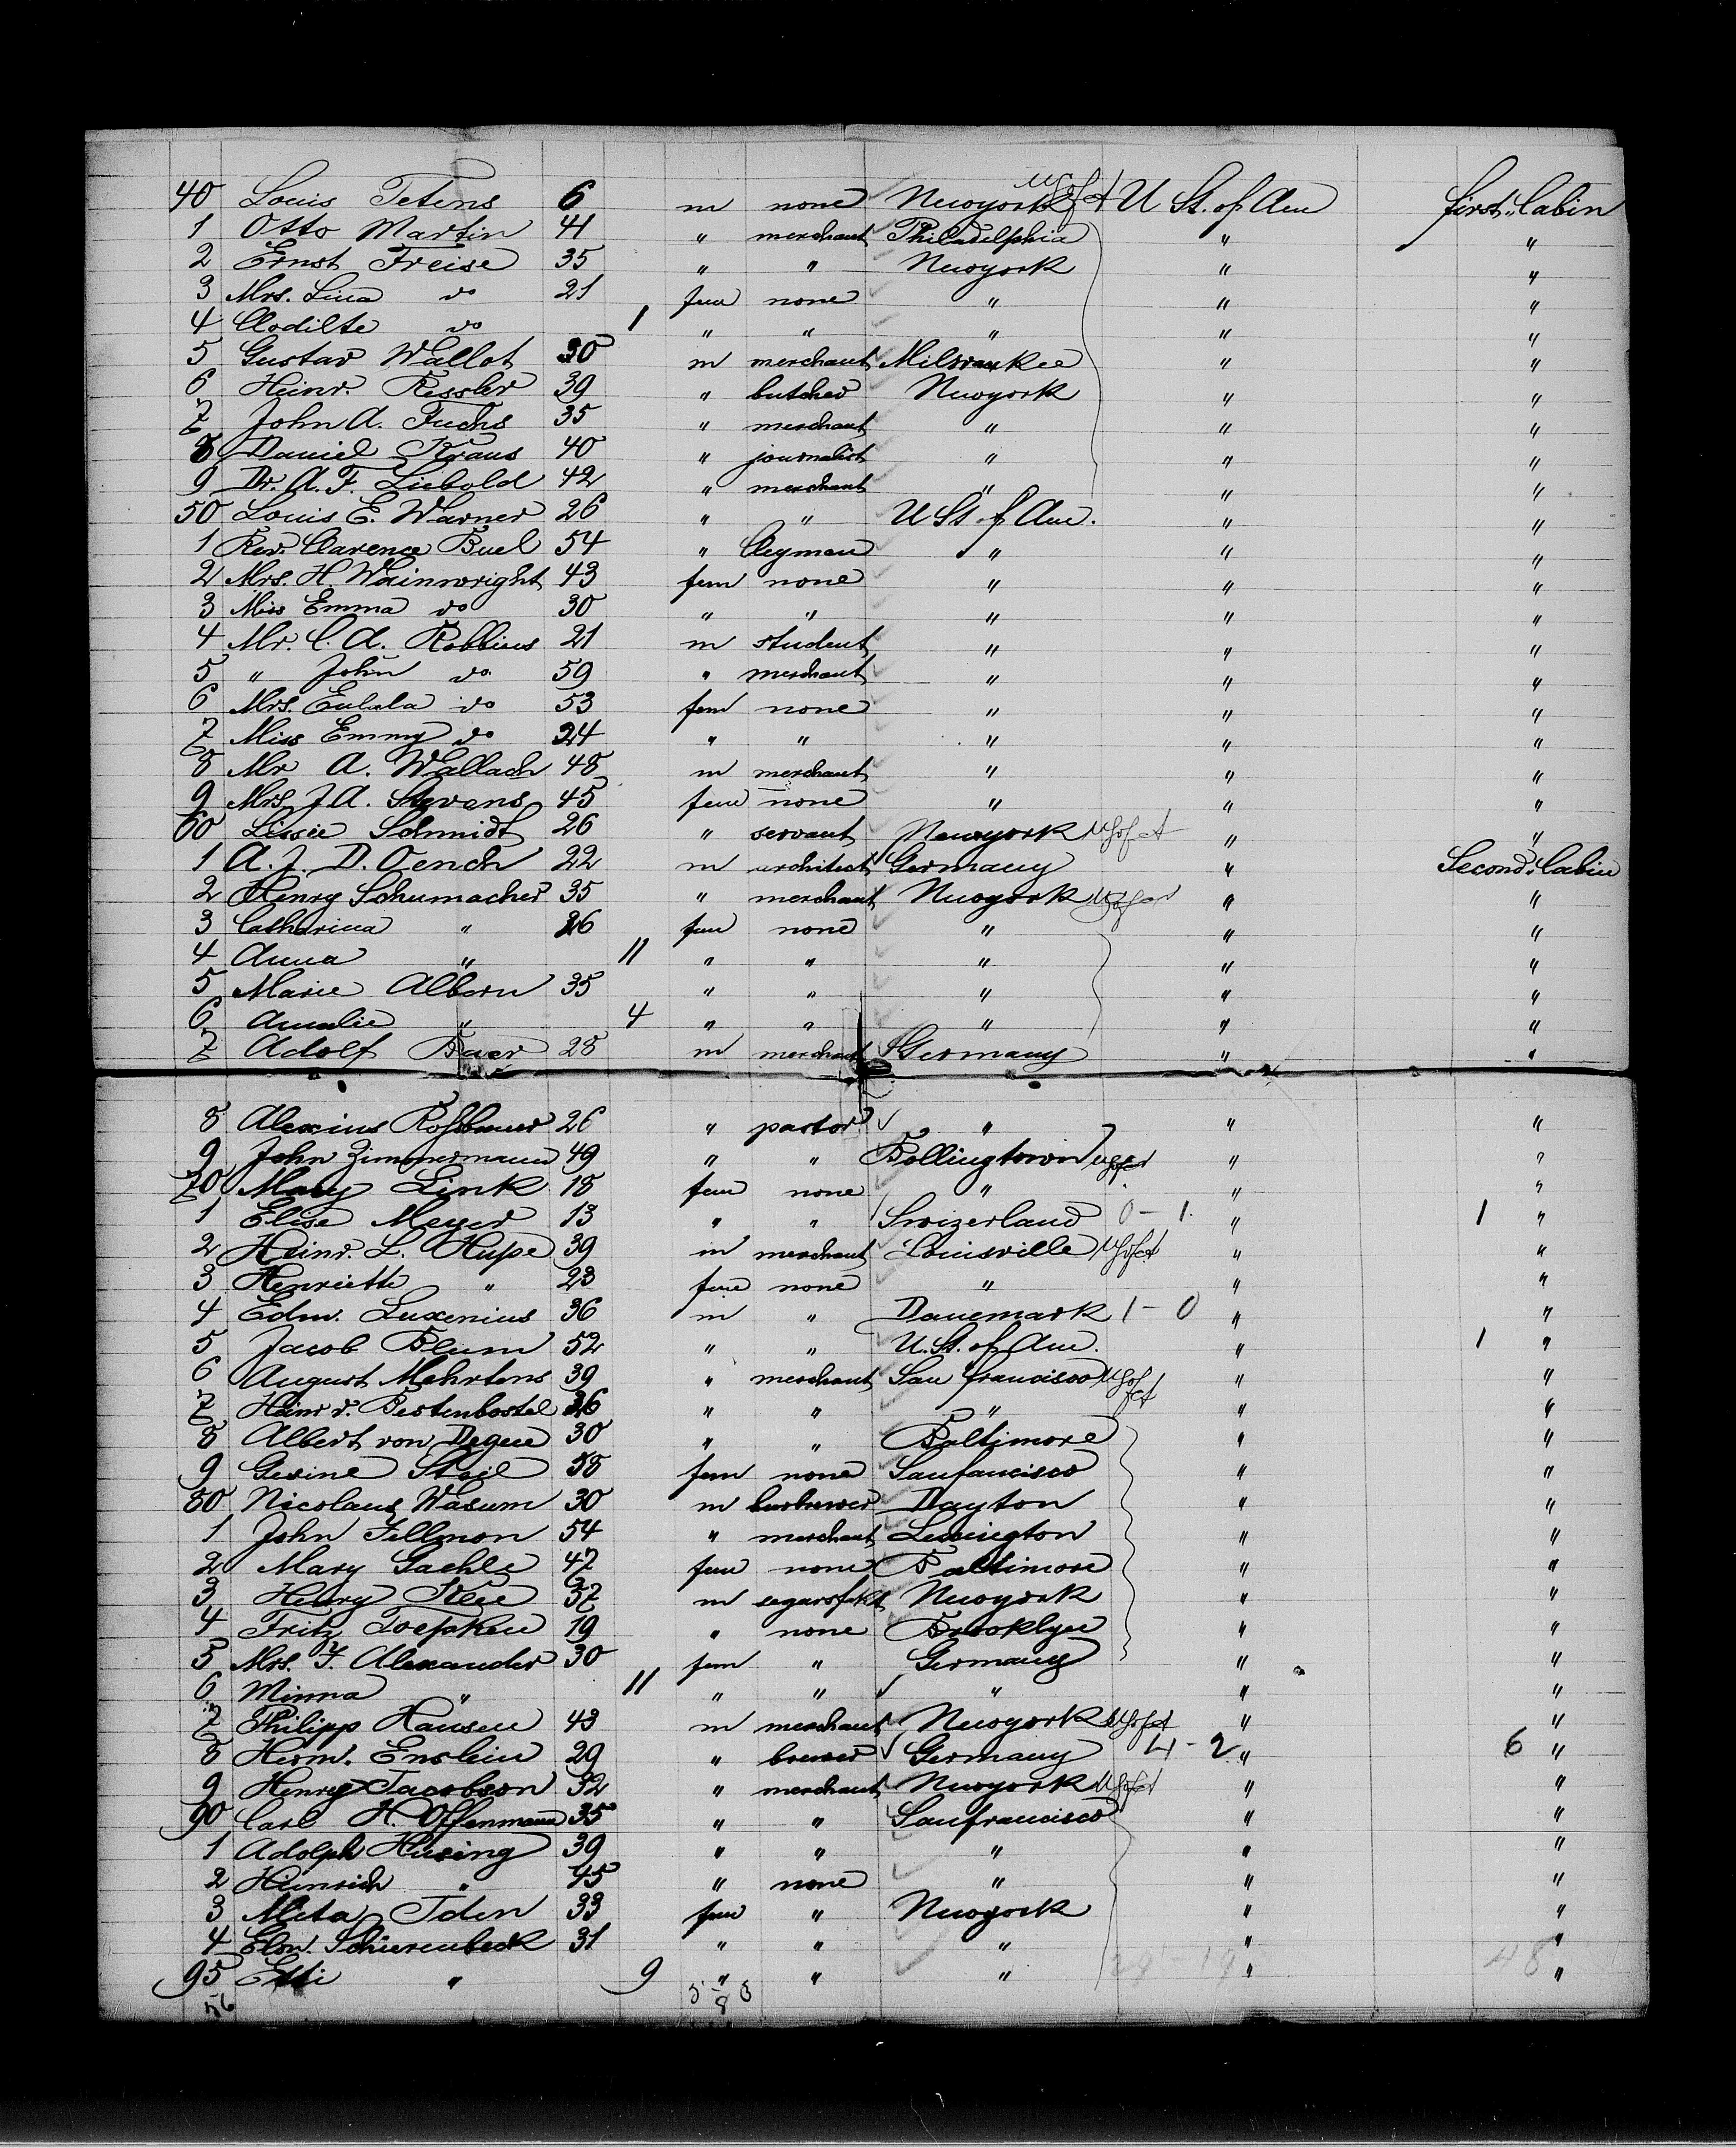 40 Louis Tetens 6 m none Newyork U S of A U St. of Am first Cabin
1 Otto Martin 41 " merchant Philadelphia " "
2 Ernst Freise 35 " " Newyork " "
3 Mrs. Lina do 21 fem none " " "
4 Clodilte do 1 " " " " "
5 Gustav Wallot 30 m merchant Milwaukee " "
6 Heinr. Ressler 39 " butcher Newyork " "
7 John A. Fuchs 35 " merchant " " "
8 Daniel Kraus 40 " journalist " " "
9 Dr. A. F. Liebold 42 " merchant " " "
50 Louis E. Warner 26 " " U St. of Am. " "
1 Rev. Clarence Buel 54 " Clegman " " "
2 Mrs. H. Wainwright 43 fem none " " "
3 Miss Emma do 30 " " " " "
4 Mr. C. A. Robbins 21 m student " " "
5 " John do 59 " merchant " " "
6 Mrs. Eulala do 53 fem none " " "
7 Miss Emmy do 24 " " " " "
8 Mr A. Wallach 48 m merchant " " "
9 Mrs J. A. Stevens 45 fem none " " "
60 Lissie Schmidt 26 " servant Newyork U S of A " "
1 A. J. D. Oench 22 m architect Germany " Second Cabin
2 Henry Schumacher 35 " merchant Newyork U S of A " "
3 Catharina " 26 fem none " " "
4 Anna " 11 " " " " "
5 Marie Albern 35 " " " " "
6 Amalie " 4 " " " " "
7 Adolf Baer 28 m merchant Germany " "
8 Alexius 26 " pastor " " "
9 John Zimmermann 49 " " Bollingtown U S of A " "
70 Mary Link 18 fem none " " "
1 Elise Meyer 13 " " Swizerland 0 - 1. " 1 "
2 Heinr. L. Hupe 39 m merchant Louisville U S of A " "
3 Henriette " 23 fem none " " "
4 Edm. Luxenius 36 m " Danemark 1 - 0 " "
5 Jacob Blum 52 " " U. St. of Am. " 1 "
6 August Mehrtens 39 " merchant San francisco U S of A " "
7 Heinr v. Bestenbostel 36 " " " " "
8 Albert von Degen 30 " " Baltimore " "
9 Gesine Stoil 58 fem none Sanfancisco " "
80 Nicolaus Wasum 30 m Dayton " "
1 John Fellmon 54 " merchant Lexington " "
2 Mary Gaehle 47 fem none Baltimore " "
3 Henry 37 m segarsfakt Newyork " "
4 Fritz Toepken 19 " none Brooklyn " "
5 Mrs. F. Alexander 30 fem " Germany " "
6 Minna " 11 " " " " "
7 Philipp Hansen 43 m merchant Newyork U S of A " "
8 Herm. Enslein 29 " brewer Germany 4 - 2 " 6 "
9 Henry Jacobson 32 " merchant Newyork U S of A " "
90 Carl H. Offenmann 35 " " Sanfrancisco " "
1 Adolph Husing 39 " " " " "
2 Heinrich " 45 " none " " "
3 Meta Tden 33 fem " Newyork " "
4 Elon. Schierenbeck 31 " " " " "
95 Etti " 9 " " " 29 - 19 " 48 "
56 5 - 8 8